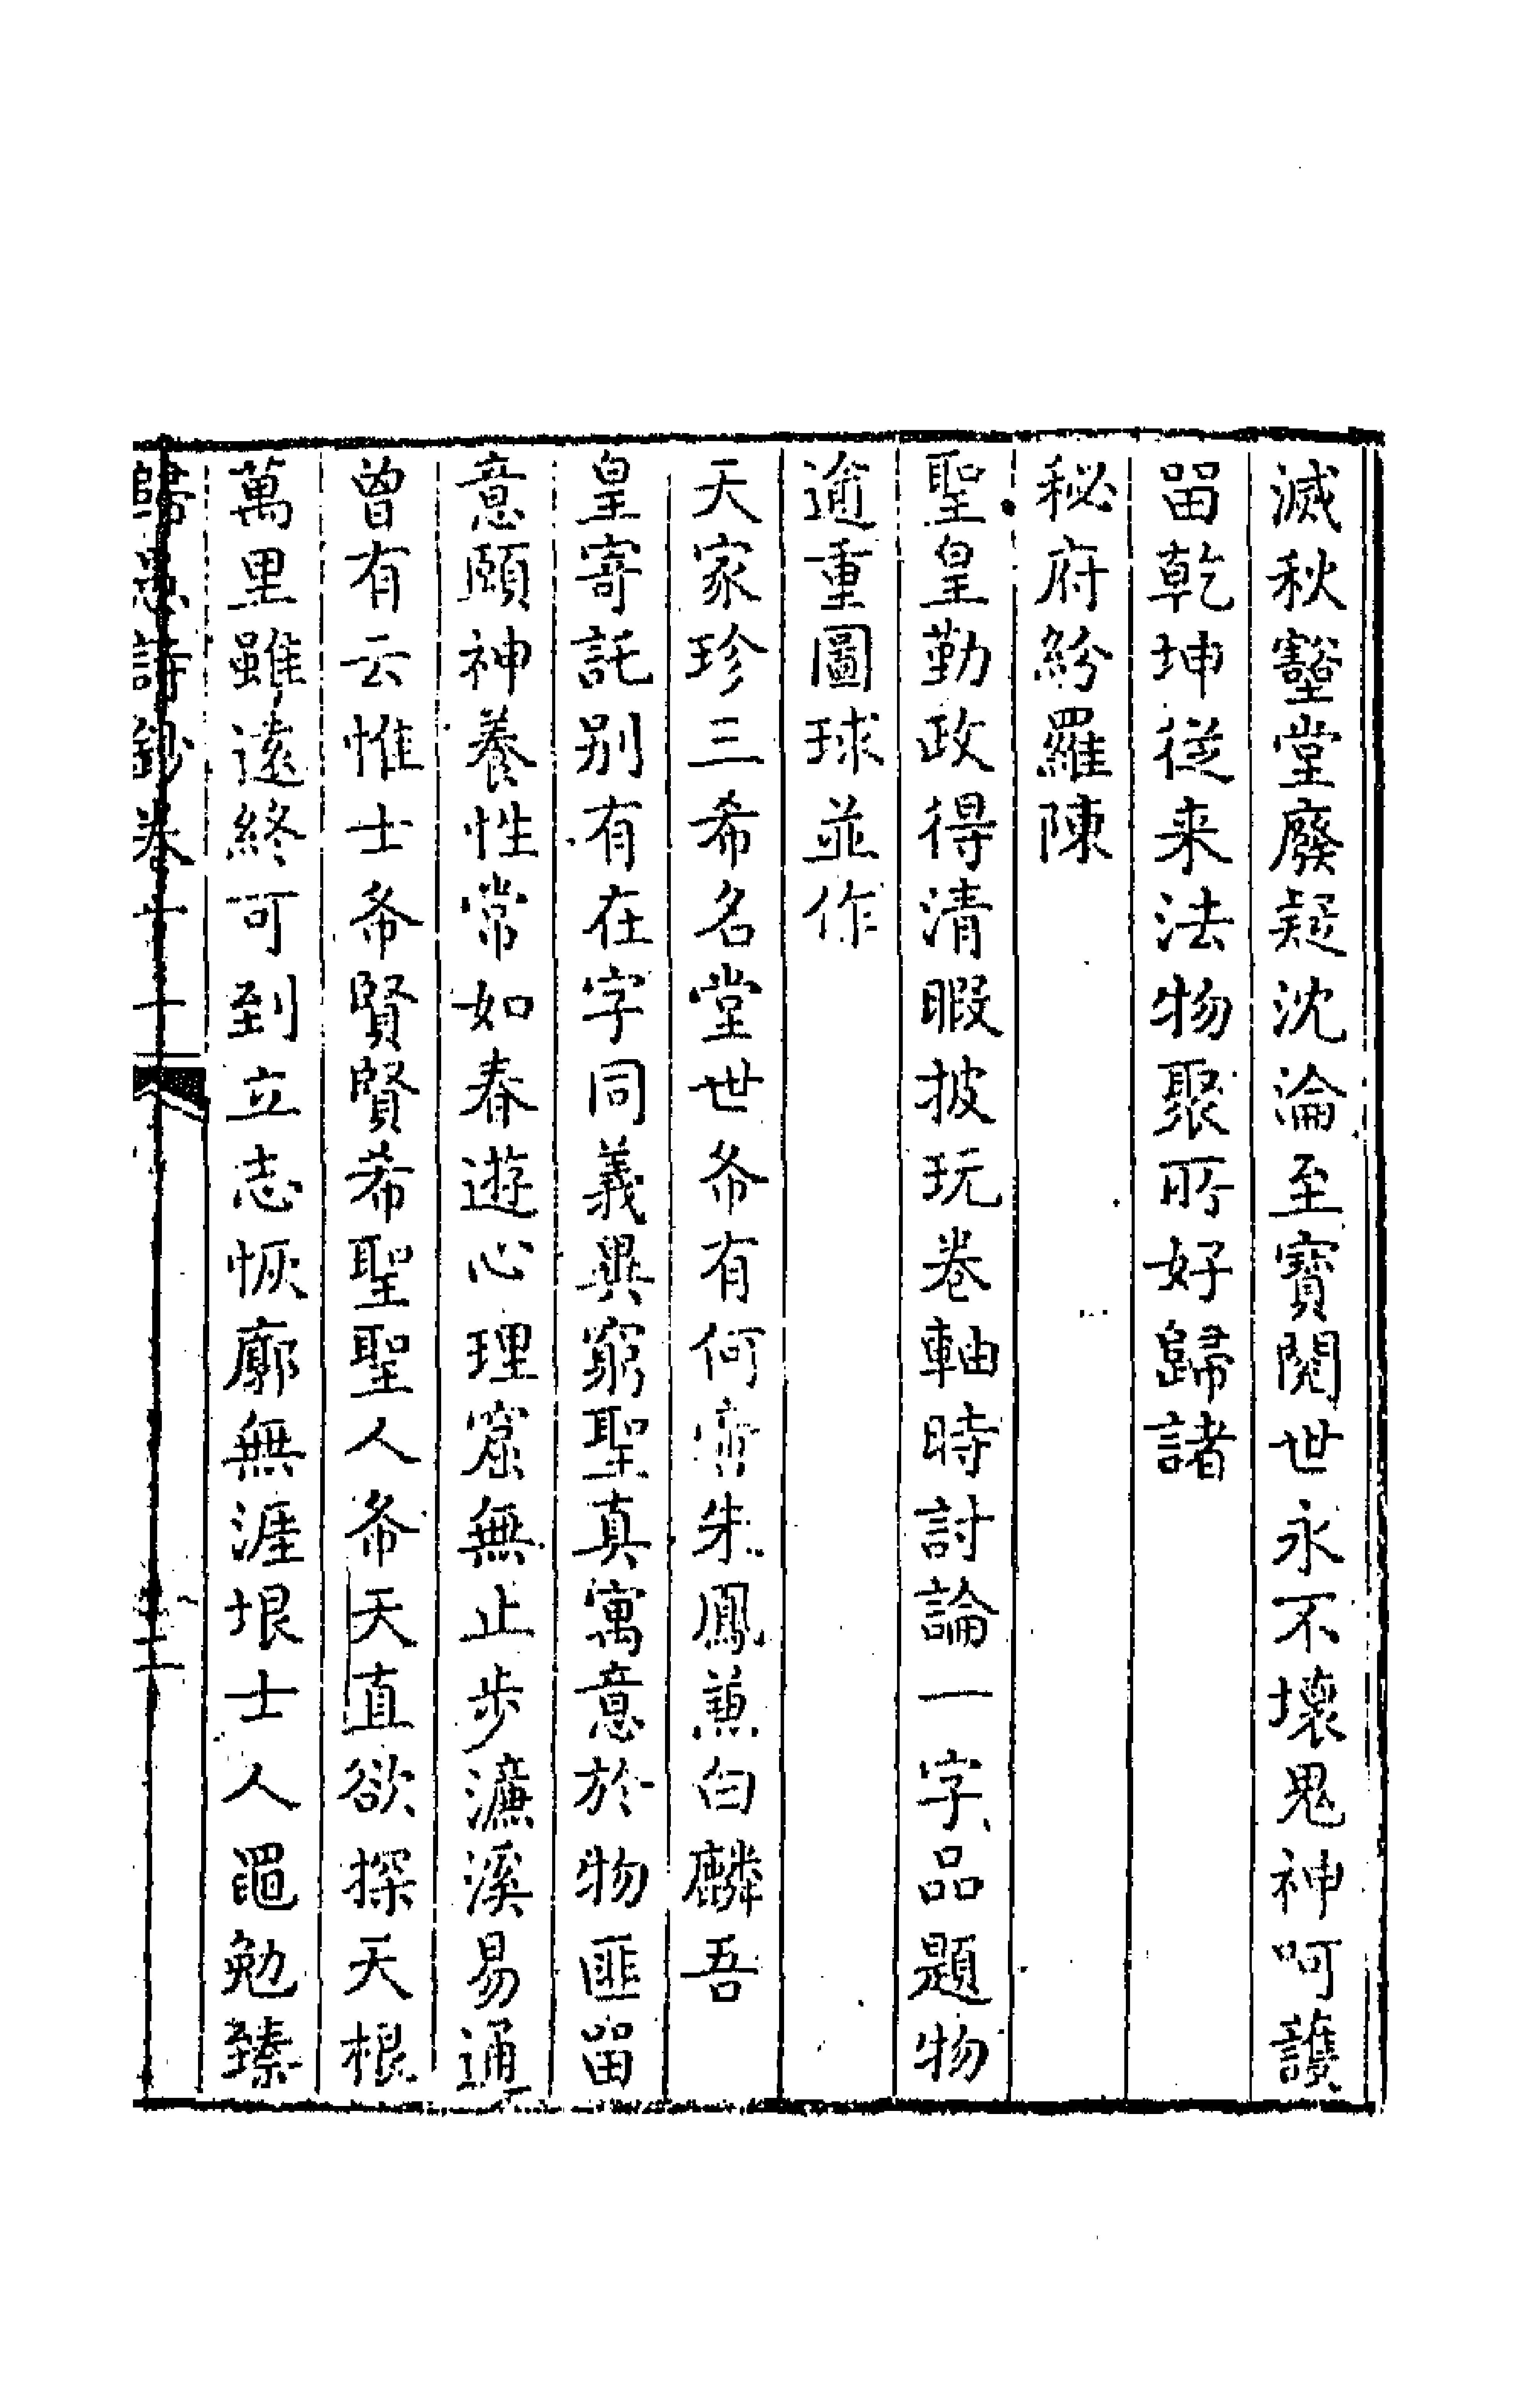 滅秋壑堂廢疑沈淪至寶閱世永不壞鬼神呵護
畱乾坤從来法物聚所好歸諸
秘府紛羅陳
聖皇勤政得清暇披玩卷軸時討論一字品題物
逾重圖球並作
天家珍三希名堂世希有何啻朱鳳兼白麟吾
皇寄託别有在字同義異窮聖真寓意於物匪畱
意頤神養性常如春遊心理窟無止步濂溪易通
曾有云惟士希賢賢希聖聖人希天直欲探天根
萬里雖遠終可到立志恢廓無涯垠士人黽勉臻
歸愚詩鈔卷十一